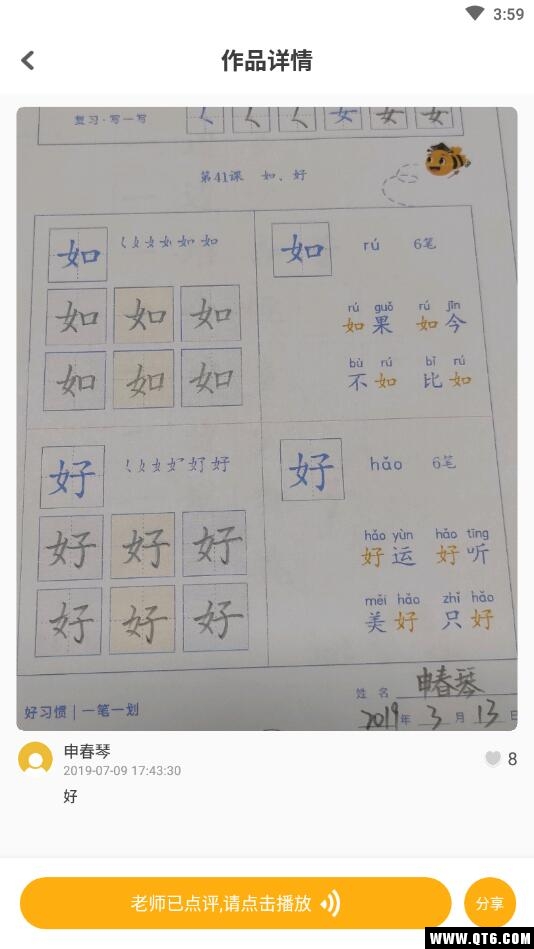 3:59
作品详情
复习·写一写
く く く 女 女 女
第41课 如、好
如
如 rú 6笔
如 如 如
rú guǒ rú jīn
如果 如今
如 如 如
bù rú bǐ rú
不如 比如
好
好 hǎo 6笔
好 好 好
hǎo yùn hǎo tīng
好运 好听
好 好 好
měi hǎo zhǐ hǎo
美好 只好
姓名 申春琴
好习惯 | 一笔一划
2019年 3月 13日
申春琴
2019-07-09 17:43:30
8
好
老师已点评,请点击播放
分享
WWW.QT6.COM